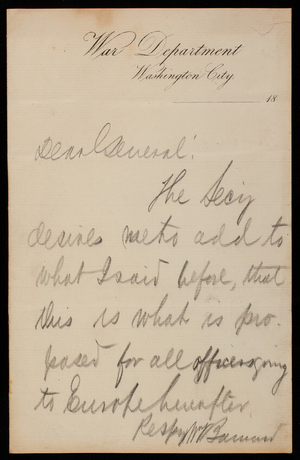 War Department
Washington City
18
Dear General:
The Secy
desires me to add to
what I said before, that
this is what is pro-
posed for all officers going
to Europe hereafter.
Respy W